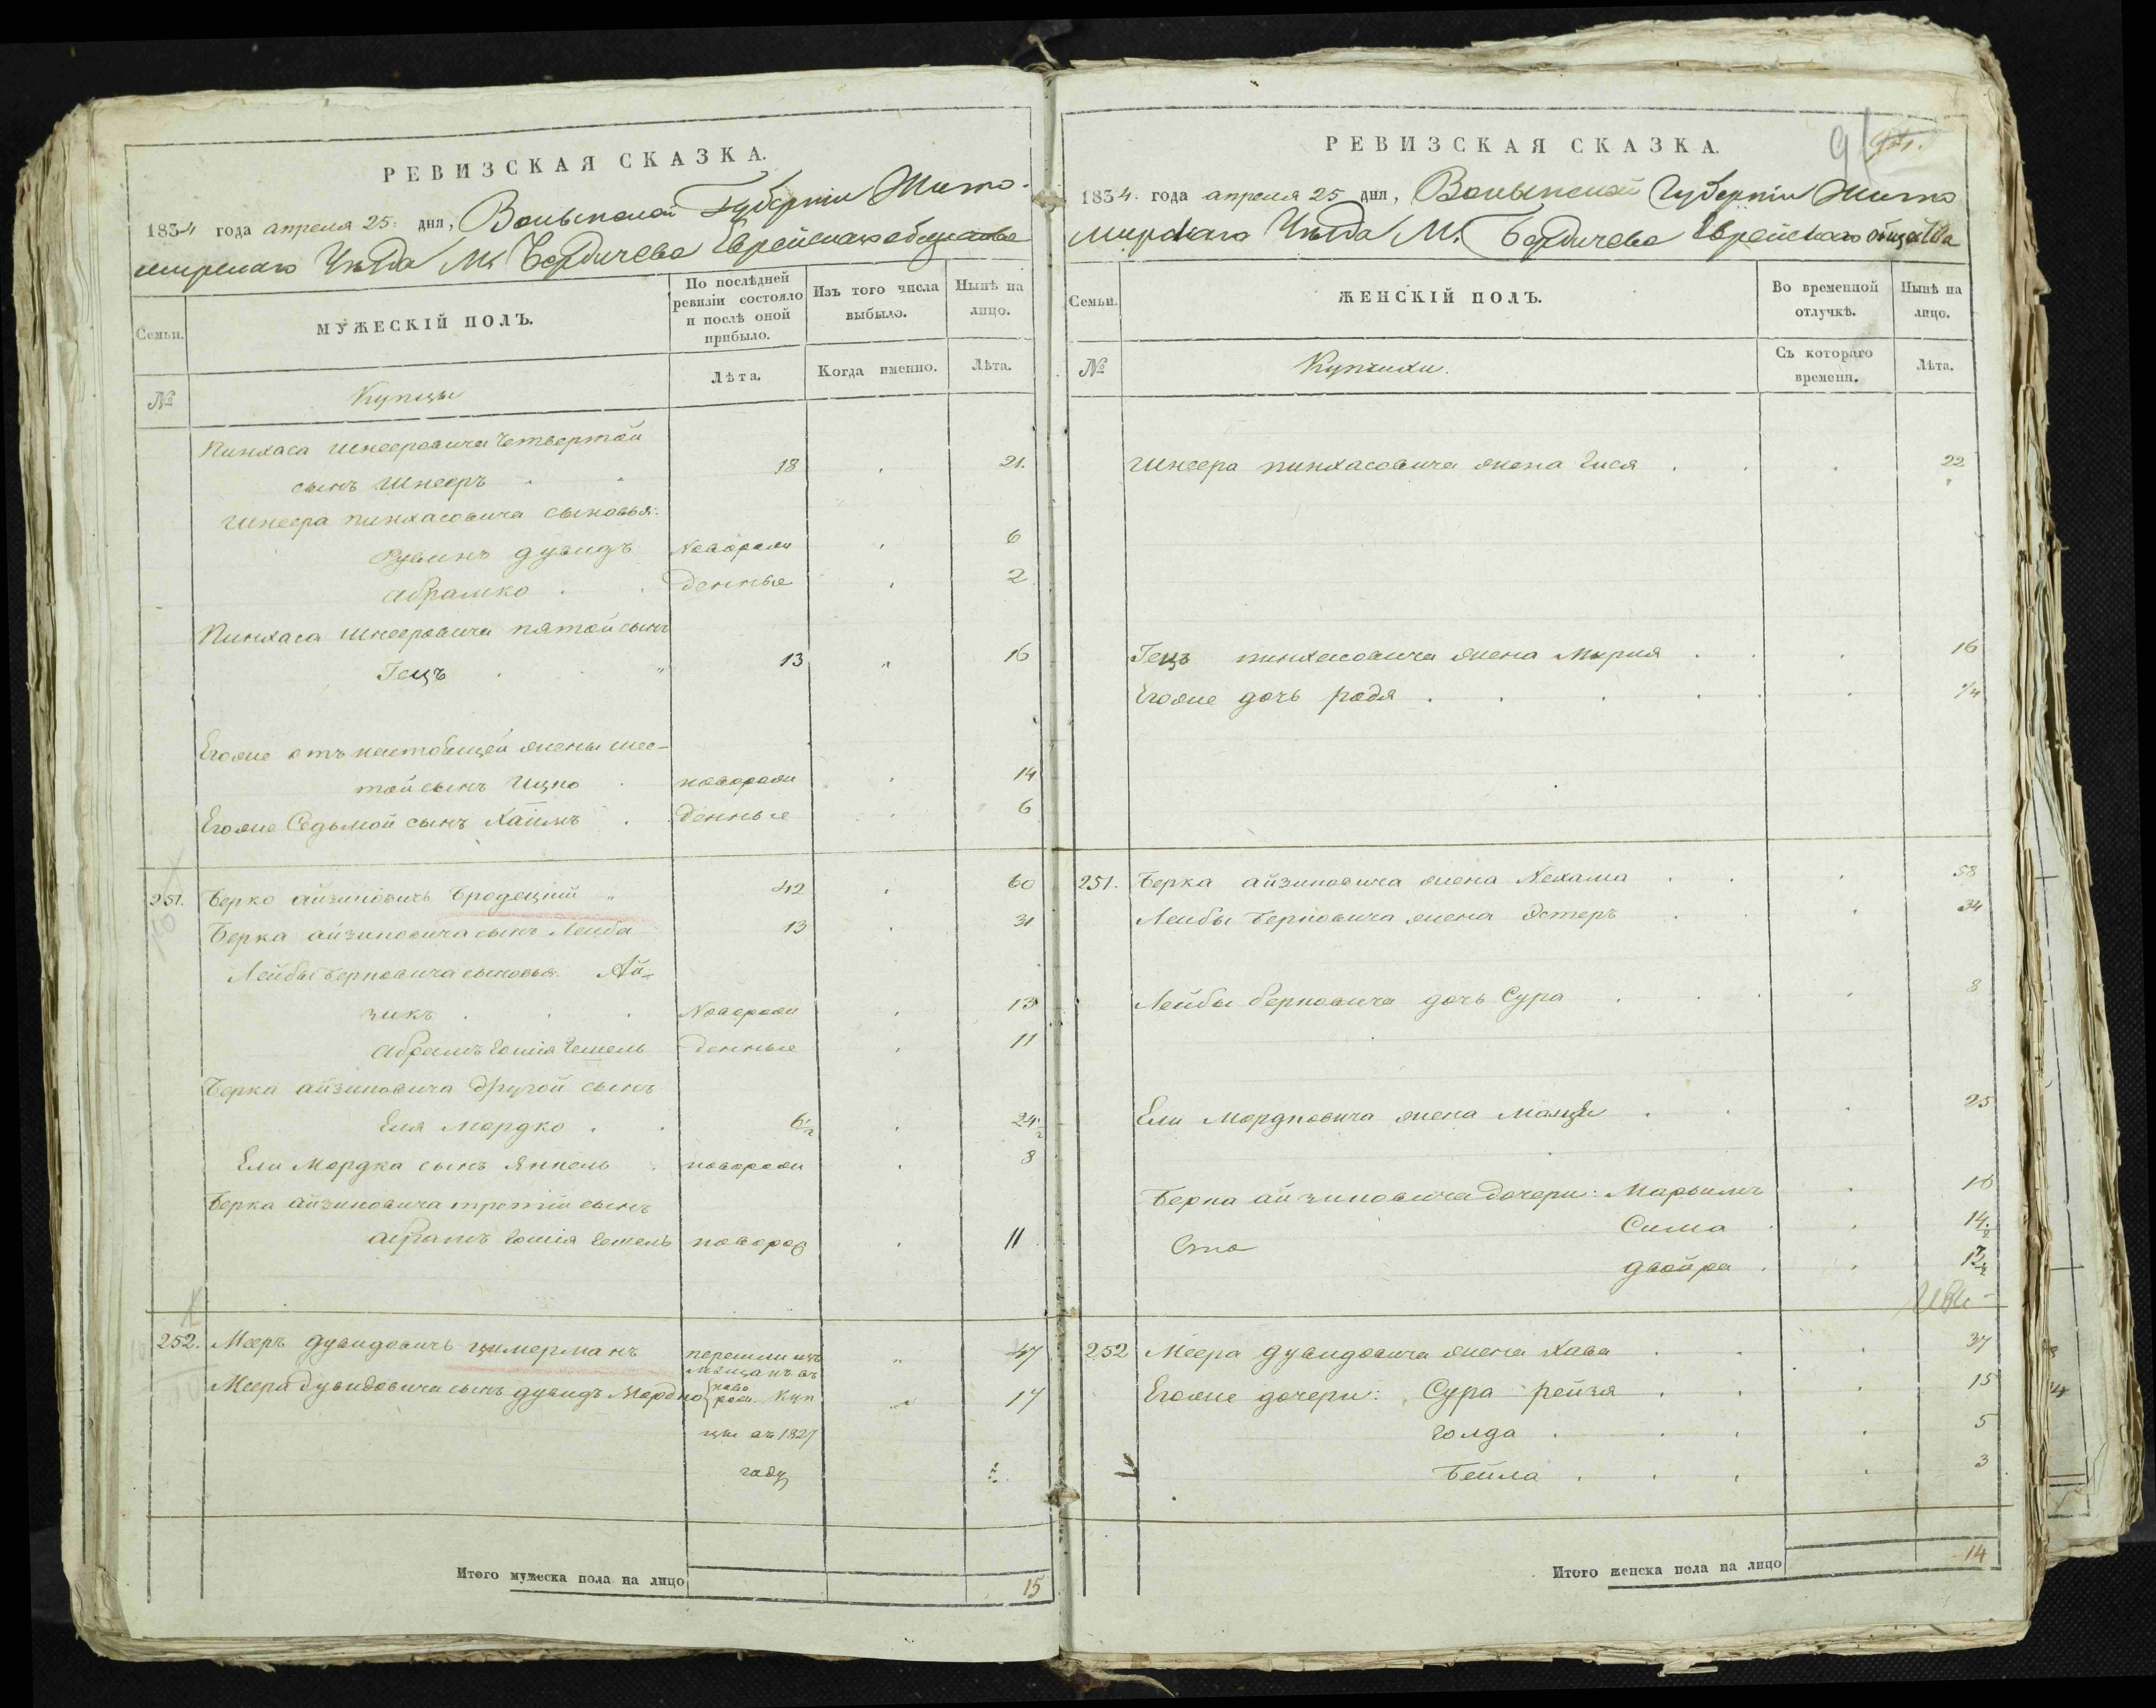 РЕВИЗСКАЯ СКАЗКА.
1834 года апреля 25: дня, Волынской Губернiи Жито-
мирскаго Уѣзда М. Бердичева Еврейскаго общества
Семьи.
МУЖЕСКІЙ ПОЛЪ.
По послѣдней ревизіи состояло и послѣ оной прибыло.
Изъ того числа выбыло.
Нынѣ на лицо.
№
Купцы
Лѣта.
Когда именно.
Лѣта.
Пинхаса Шнееровича четвертой
сынъ Шнееръ 18 21.
Шнеера пинхасовича сыновья:
Рувинъ дувидъ Новорож 6
абрамко денные 2
Пинхаса Шнееровича пятой сынъ
Гецъ 13 " 16
Егоже отъ настоящей жены шес-
той сынъ Ицко новорож 14
Егоже Седьмой сынъ Хаимъ денные 6
251. Берко айзиковичъ Бродецкій " 42 60
Берка айзиковича сынъ Лейба 13 31
Лейбы Берковича сыновья: Ай-
зикъ Новорож 13
абрамъ Гошія Гешель денные 11
Берка айзиковича другой сынъ
Еля Мордко 6½ 24½
Ели Мордка сынъ Янкель новорож 8
Берка айзиковича третій сынъ
абрамъ Гошія Гешель новорож 11
252. Мееръ дувидовичъ цимерманъ перешли изъ " 47
мѣщанъ въ
Меера дувидовича сынъ дувидъ Мордко ново рож. Куп " 17
цы въ 1827
году
Итого мужеска пола на лицо 15
РЕВИЗСКАЯ СКАЗКА.
91
1834. года апреля 25 дня, Волынской Губернiи Жито
мирскаго Уѣзда М. Бердичева Еврейскаго общества
Семьи.
ЖЕНСКІЙ ПОЛЪ.
Во временной отлучкѣ.
Нынѣ на лицо.
№
Купчихи.
Съ котораго времени.
Лѣта.
Шнеера пинхасовича жена Гися 22
Гецъ пинхасовича жена Мирия 16
Егоже дочь родя ¼
251. Берка айзиковича жена Нехама 58
Лейбы Берковича жена Эстеръ 34
Лейбы берковича дочь Сура 8
Ели Мордковича жена Малця 25
Берка айзиковича дочери: Марьимъ 16
Сима 14½
двойра 12½
252 Меера дувидовича жена Хава 37
Егоже дочери: Сура рейзя 15
голда 5
Бейла 3
Итого женска пола на лицо 14